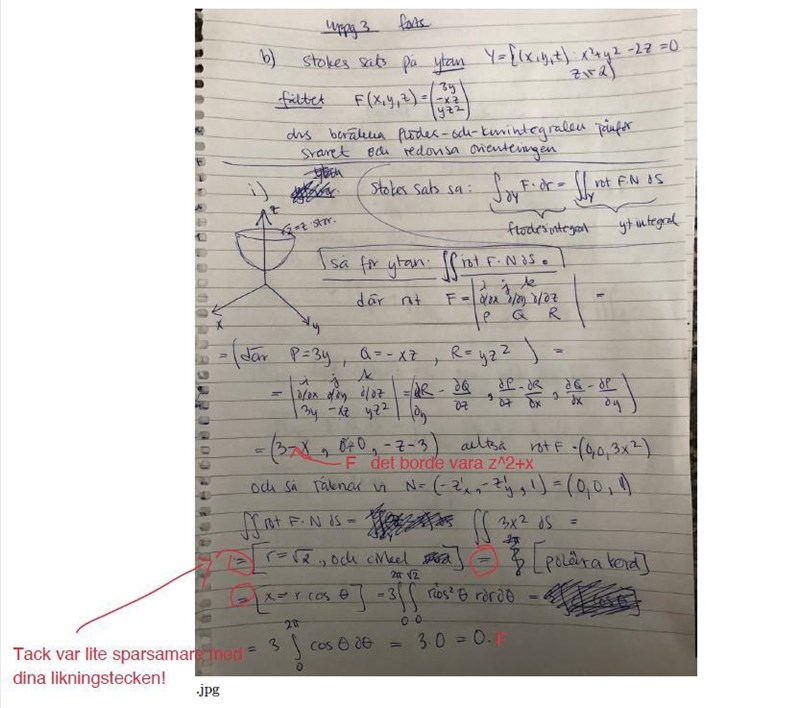 uppg 3 forts
b) Stokes sats på ytan Y={(x,y,t): x²+y²-2z=0
z=2}
fältet F(x,y,z)=(3y
-xz
yz²)
dvs beräkna flödes-och-kurvintegralen jämför
svaret och redovisa orienteringen
i)
Stokes sats sa: ∫∂Y F·dr = ∬Y rot F·N dS
flödesintegral ytintegral
z
x
y
så för ytan: ∬ rot F·N dS.
där rot F = | i j k
∂/∂x ∂/∂y ∂/∂z
P Q R | =
= (där P=3y, Q=-xz, R=yz²) =
= | i j k
∂/∂x ∂/∂y ∂/∂z
3y -xz yz² | = (∂R/∂y - ∂Q/∂z, ∂P/∂z - ∂R/∂x, ∂Q/∂x - ∂P/∂y)
= (3-x, 0-0, -z-3) alltså rot F = (0,0,3x²)
F det borde vara z^2+x
och så räknar vi N = (-z'x, -z'y, 1) = (0,0,1)
∬ rot F·N dS = ∬ 3x² dS =
= [r=√2, och cirkel] = ∮ [polära koord]
= [x=r cos θ] = 3 ∫₀^2π ∫₀^√2 r²cos²θ r dr dθ =
= 3 ∫₀^2π cos θ dθ = 3·0 = 0. F
Tack var lite sparsamare med
dina likningstecken!
.jpg